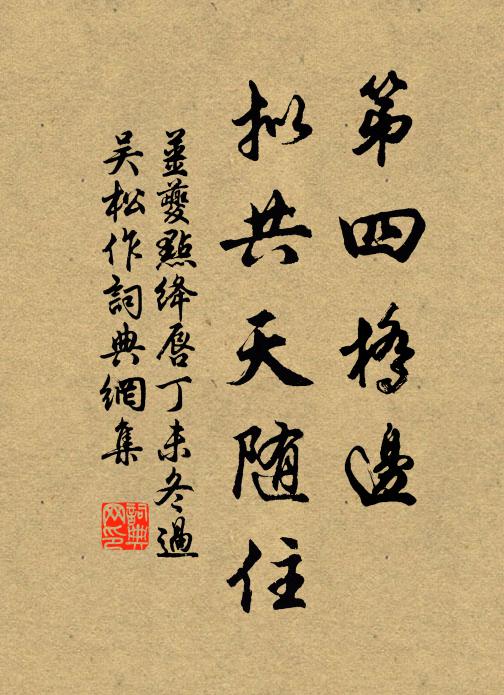 第四橋邊
拟共天随住
姜夔點絳唇丁未冬過
吳松作詞典網集
詞典
网印